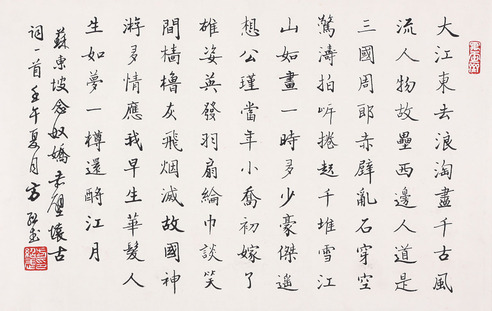 大江東去浪淘盡千古風
流人物故壘西邊人道是
三國周郎赤壁亂石穿空
驚濤拍岸捲起千堆雪江
山如畫一時多少豪傑遙
想公瑾當年小喬初嫁了
雄姿英發羽扇綸巾談笑
間檣櫓灰飛烟滅故國神
游多情應我早生華髮人
生如夢一樽還酹江月
蘇東坡念奴嬌赤壁懷古
詞一首壬午夏月方